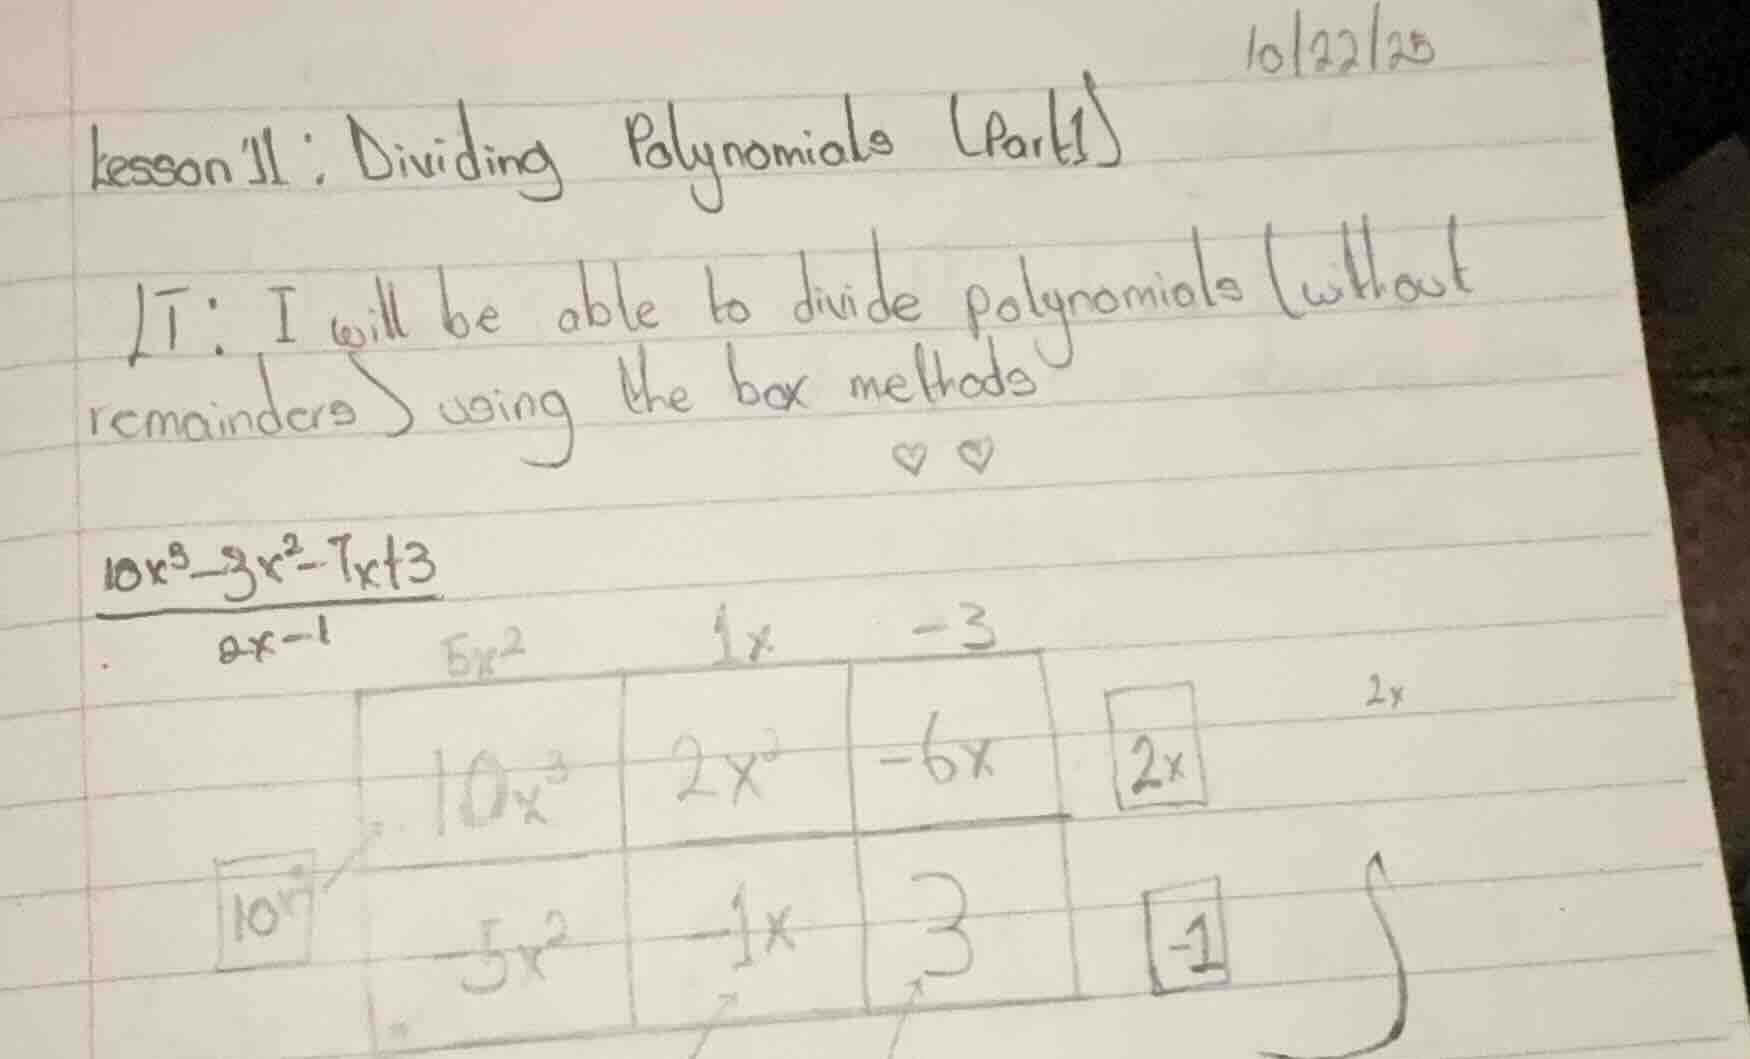 10/22/25
Lesson 11: Dividing Polynomials (Part 1)
LT: I will be able to divide polynomials (without
remainders) using the box methods
♡ ♡
10x³-3x²-7x+3
2x-1
5x² 1x -3
10x³ 2x² -6x 2x 2x
-5x² -1x 3 -1